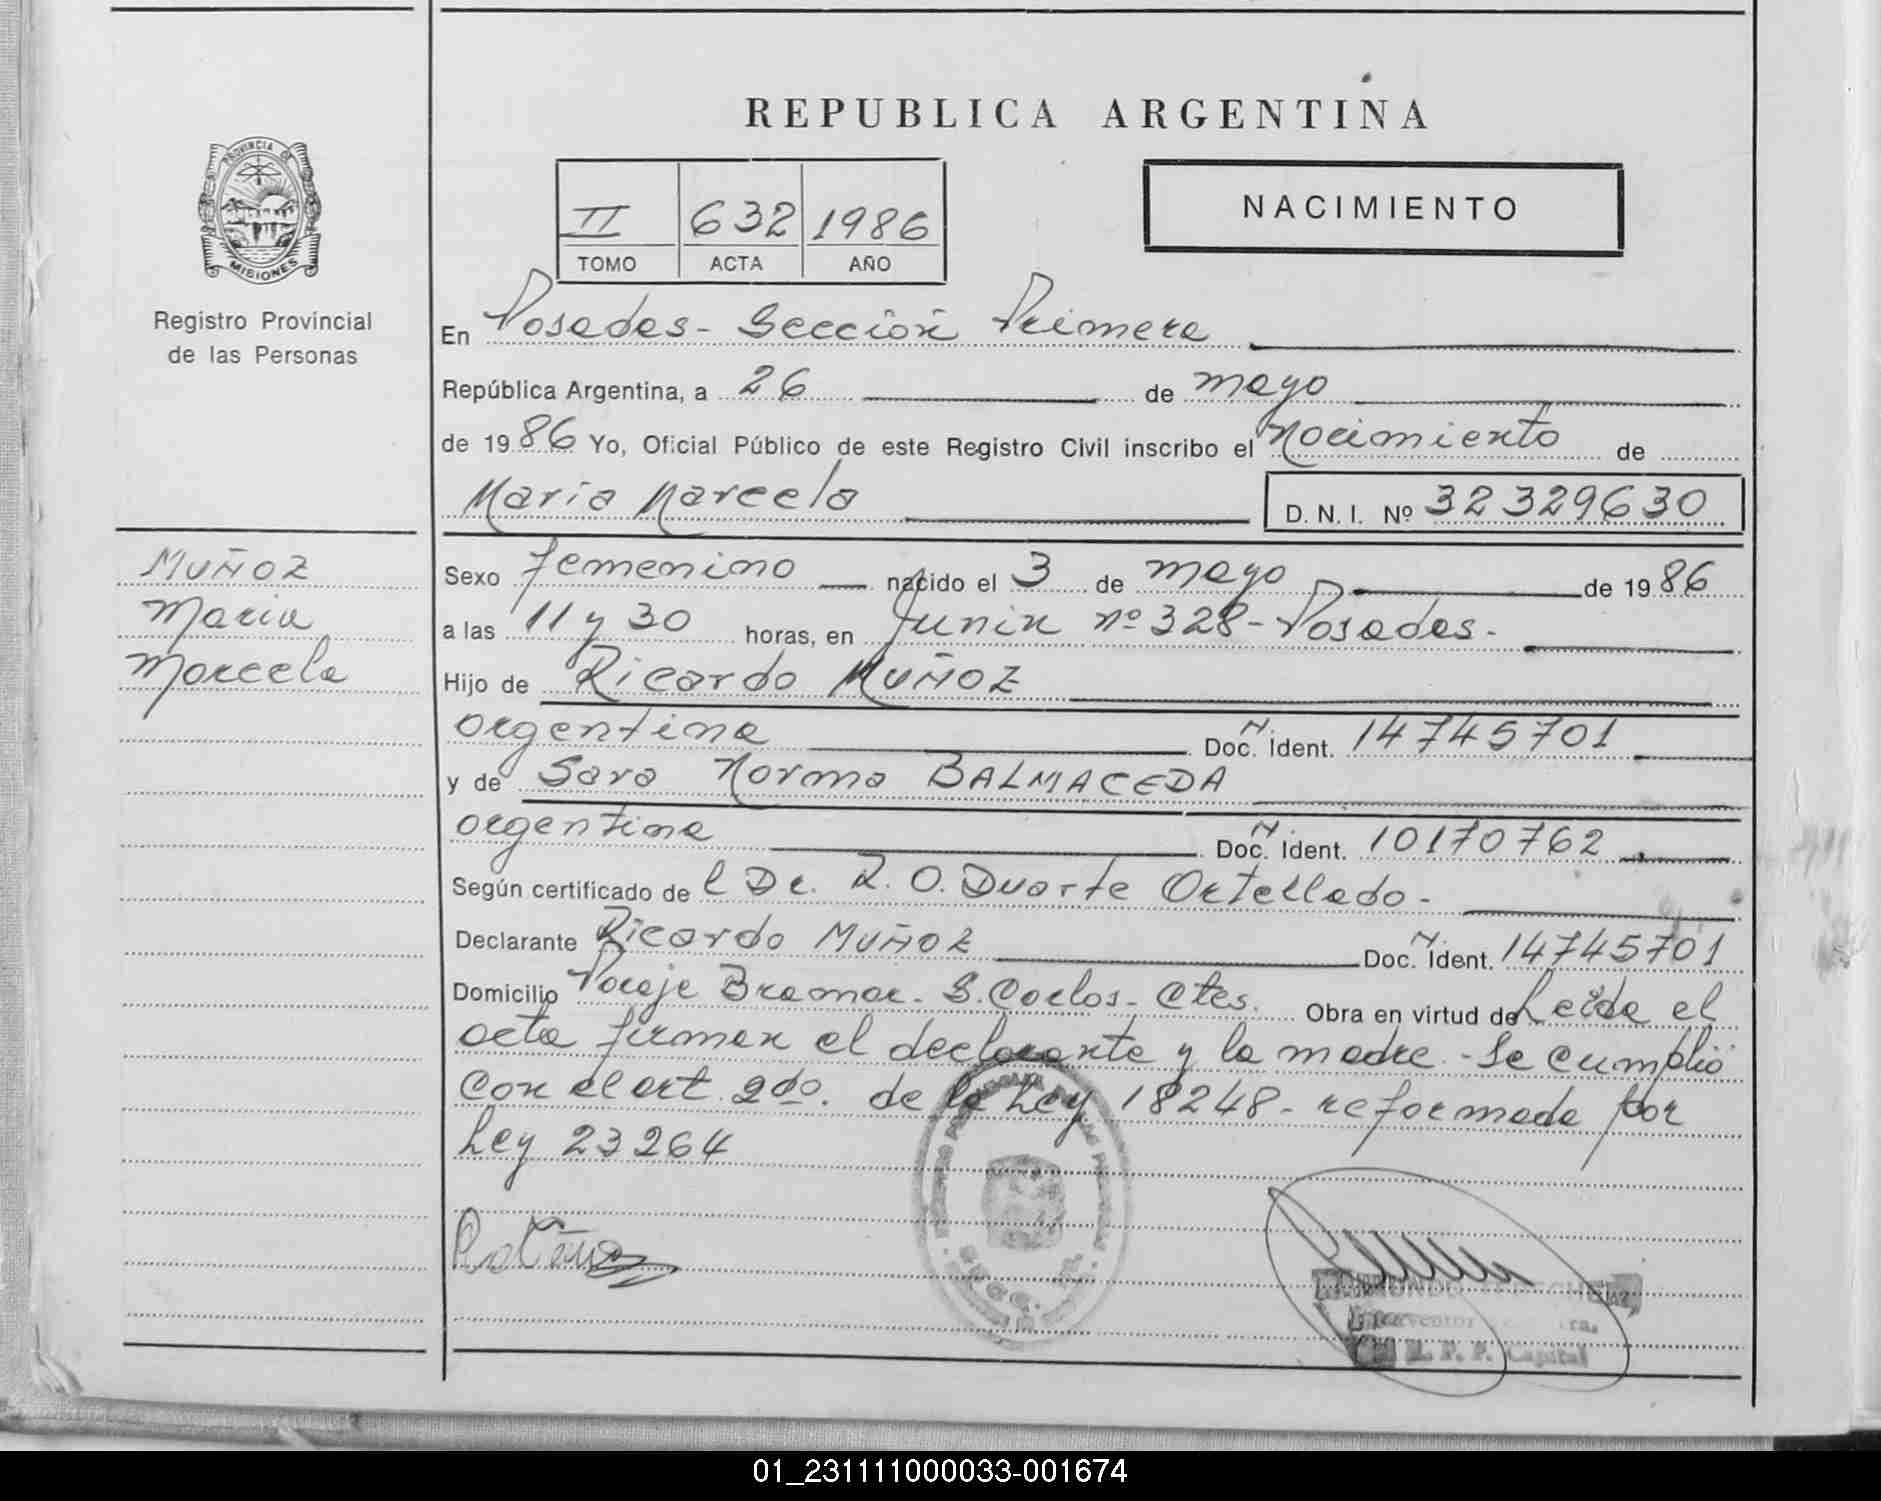 REPUBLICA ARGENTINA
PROVINCIA DE
MISIONES
Registro Provincial
de las Personas
II 632 1986
TOMO ACTA AÑO
NACIMIENTO
En Posadas - Sección Primera
República Argentina, a 26 de mayo
de 1986 Yo, Oficial Público de este Registro Civil inscribo el Nacimiento de
Maria Marcela D. N. I. Nº 32329630
MUÑOZ
Maria
Marcela
Sexo femenino nacido el 3 de mayo de 1986
a las 11 y 30 horas, en Junin nº 328 - Posadas -
Hijo de Ricardo MUÑOZ
argentina Doc. N Ident. 14745701
y de Sara Norma BALMACEDA
argentina Doc. N Ident. 10170762
Según certificado de l Dr. R. O. Duarte Ortellado -
Declarante Ricardo MUÑOZ Doc. N Ident. 14745701
Domicilio Paraje Bramar - S. Carlos - Ctes. Obra en virtud de Leida el
acta firman el declarante y la madre - Se cumplió
con el art. 2do. de la Ley 18248 - reformada por
Ley 23264
Interventor
R. P. P. Capital
01_231111000033-001674